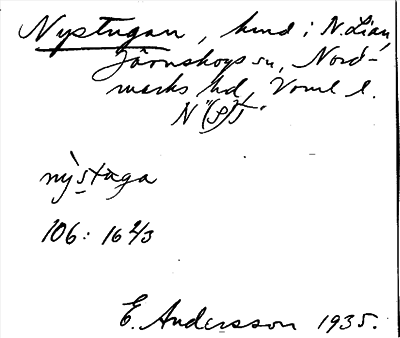 Nystugan, hmd i N. Lian,
Järnskogs sn, Nord-
marks hd, Värml l.
nỳstùga
106: 16 2/3
E. Andersson 1935.